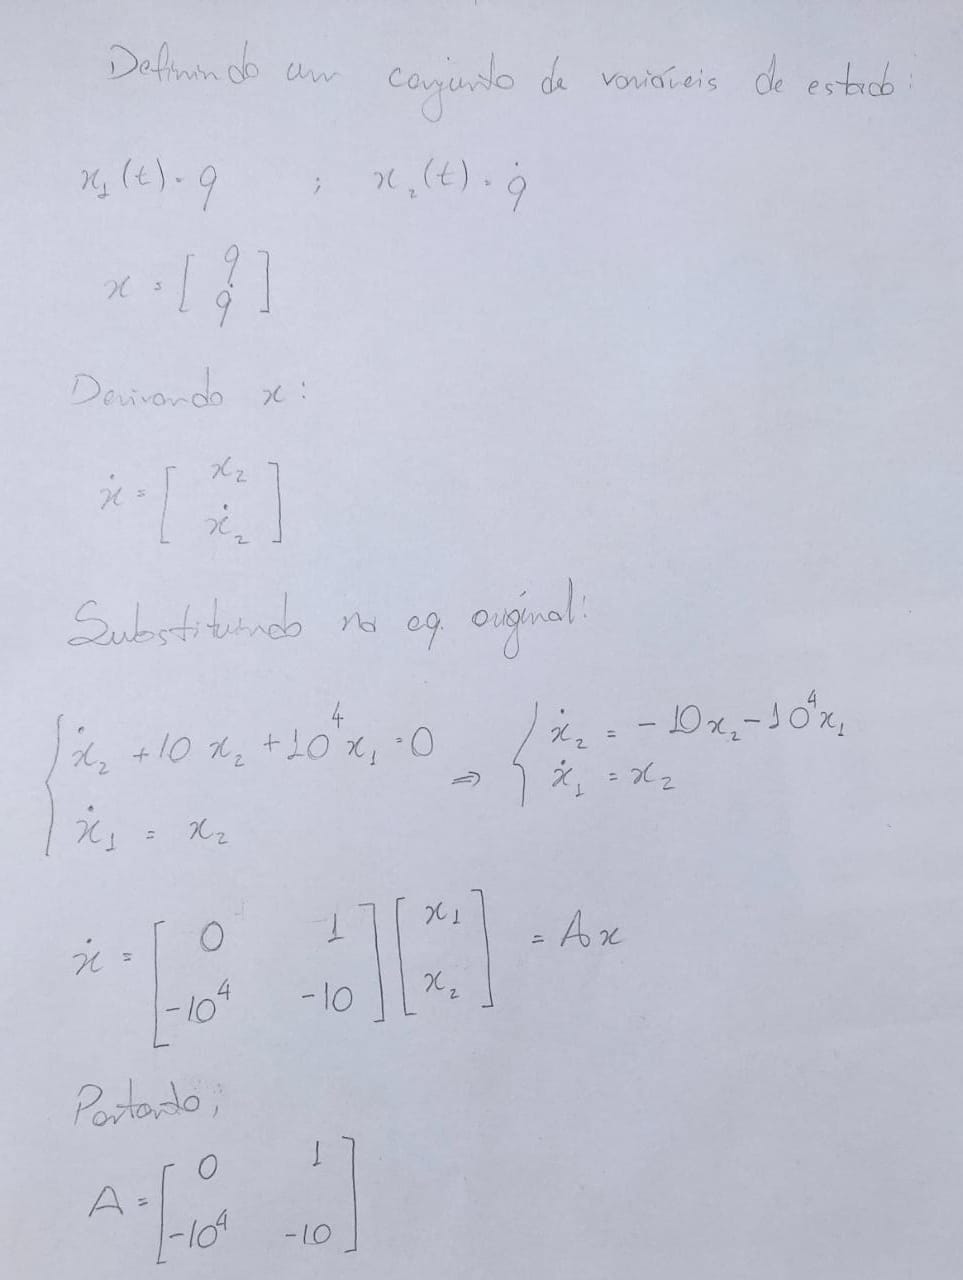 Definindo um conjunto de variáveis de estado:
x₁(t) = q ; x₂(t) = q̇
x = [ q
q̇ ]
Derivando x:
ẋ = [ x₂
ẋ₂ ]
Substituindo na eq. original:
{ ẋ₂ + 10 x₂ + 10⁴ x₁ = 0 ⇒ { ẋ₂ = -10 x₂ - 10⁴ x₁
ẋ₁ = x₂ ẋ₁ = x₂
ẋ = [ 0 1 ] [ x₁ ] = A x
[ -10⁴ -10 ] [ x₂ ]
Portanto;
A = [ 0 1 ]
[ -10⁴ -10 ]